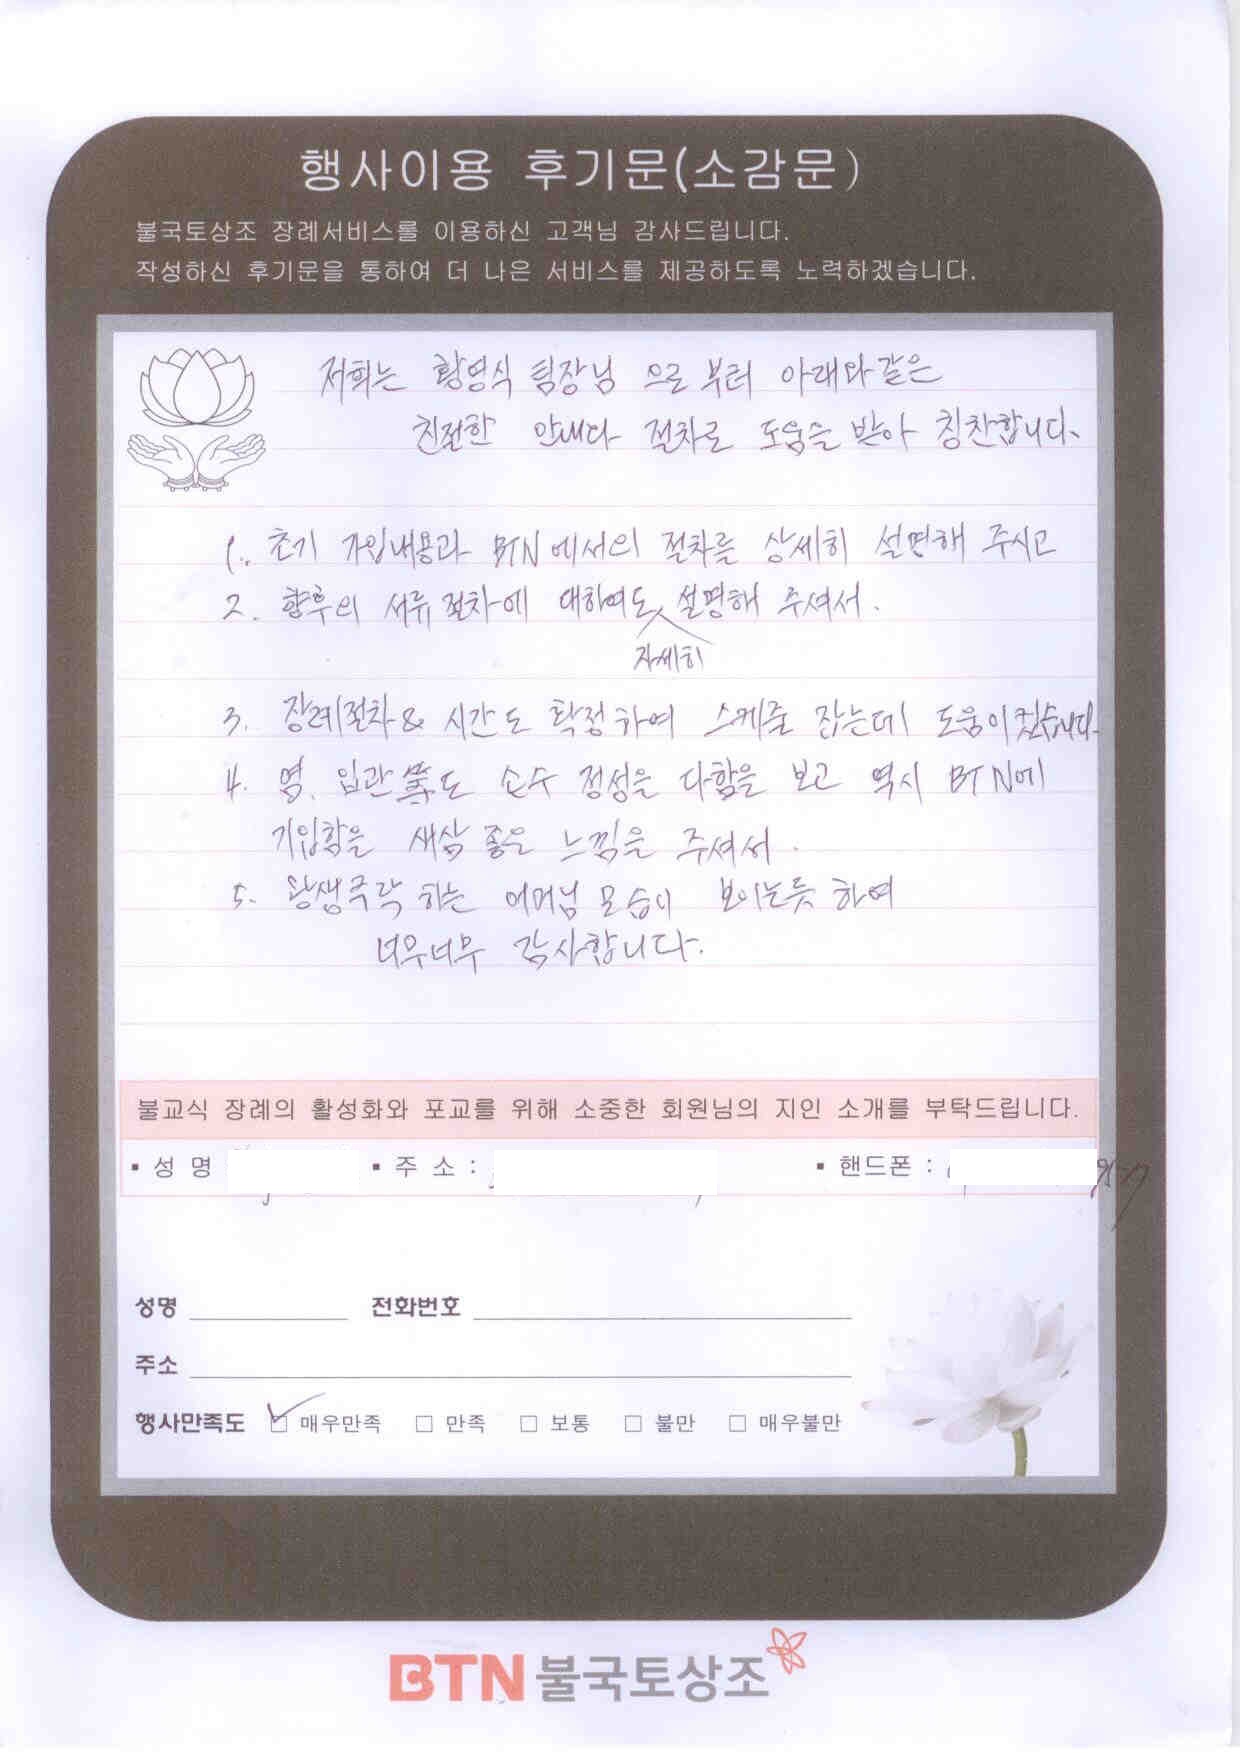 행사이용 후기문(소감문)
불국토상조 장례서비스를 이용하신 고객님 감사드립니다.
작성하신 후기문을 통하여 더 나은 서비스를 제공하도록 노력하겠습니다.
저희는 황영식 팀장님 으로 부터 아래와같은
친절한 안내다 절차로 도움을 받아 칭찬합니다.
1. 초기 가입내용과 BTN에서의 절차를 상세히 설명해 주시고
2. 향후의 서류절차에 대하여도 설명해 주셔서.
자세히
3. 장례절차& 시간도 확정하여 스케줄 잡는데 도움이 컸습니다.
4. 염, 입관 도 손수 정성을 다함을 보고 역시 BTN에
가입함을 새삼 좋은 느낌을 주셔서.
5. 왕생극락 하는 어머님 모습이 보이는듯 하여
너무너무 감사합니다.
불교식 장례의 활성화와 포교를 위해 소중한 회원님의 지인 소개를 부탁드립니다.
▪ 성 명 ▪ 주 소 : ▪ 핸드폰 :
성명 전화번호
주소
행사만족도 ☑ 매우만족 □ 만족 □ 보통 □ 불만 □ 매우불만
BTN 불국토상조